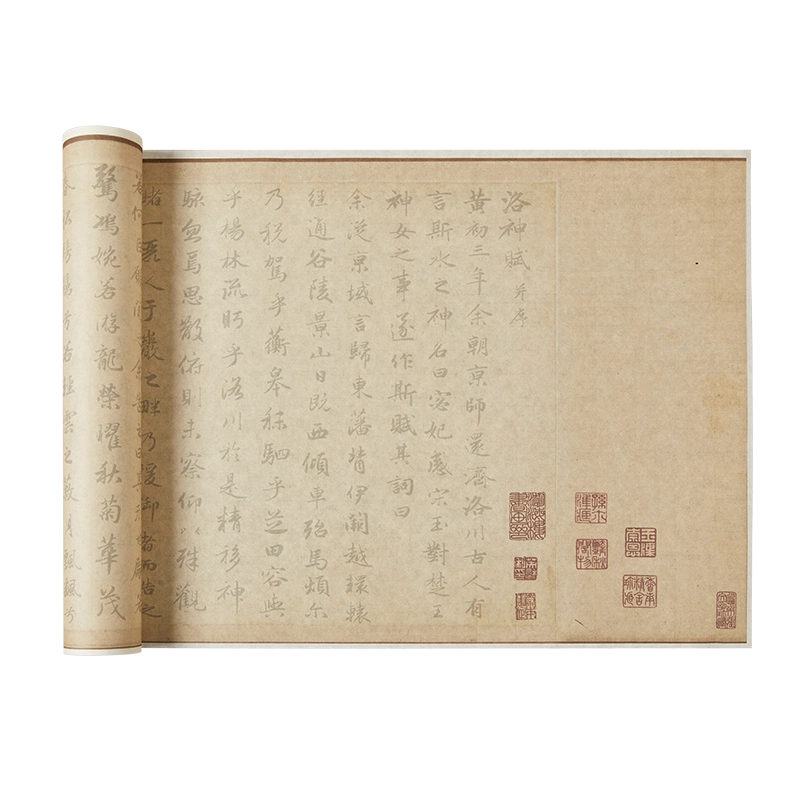 洛神賦 并序
黄初三年余朝京師還濟洛川古人有
言斯水之神名曰宓妃感宋玉對楚王
神女之事遂作斯賦其詞曰
余從京域言歸東藩背伊闕越轘轅
經通谷陵景山日既西傾車殆馬煩尔
乃税駕乎蘅皋秣駟乎芝田容與
乎楊林流眄乎洛川於是精移神
駭忽焉思散俯則未察仰以殊觀
睹一麗人于巖之畔乃援御者而告之
驚鴻婉若游龍榮曜秋菊華茂
春松髣髴兮若輕雲之蔽月飄颻兮